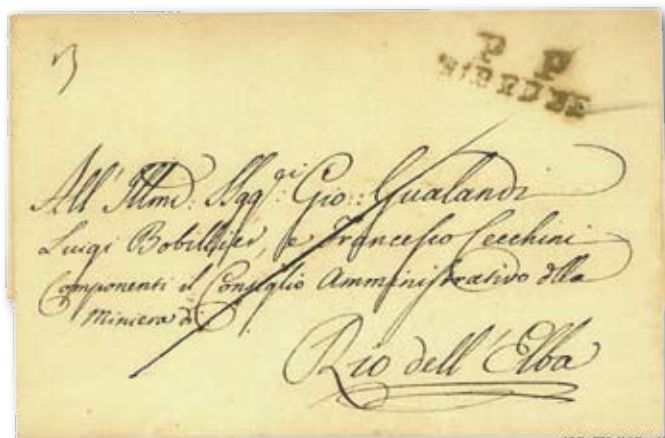 P P
All' Illmi: Sgg:ri Gio: Gualandi
Luigi Bobillier, e Francesco Cecchini
Componenti il Consiglio Amministrativo della
Miniera di
Rio dell'Elba